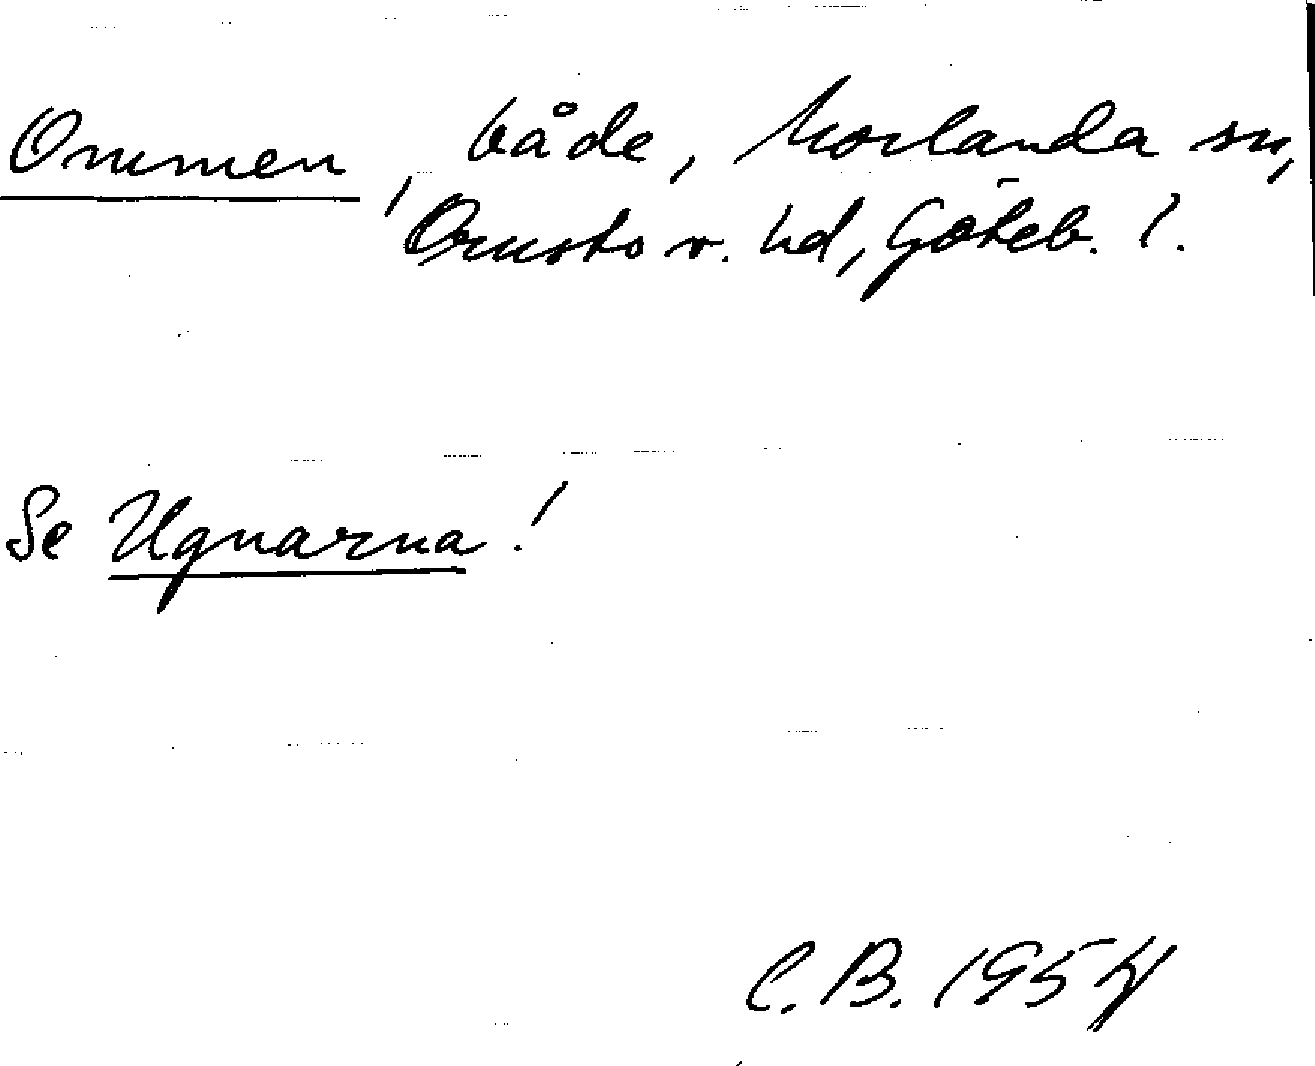 Ommen, både, Morlanda sn,
Orusts v. hd, Göteb. l.
Se Ugnarna!
C.B. 1954